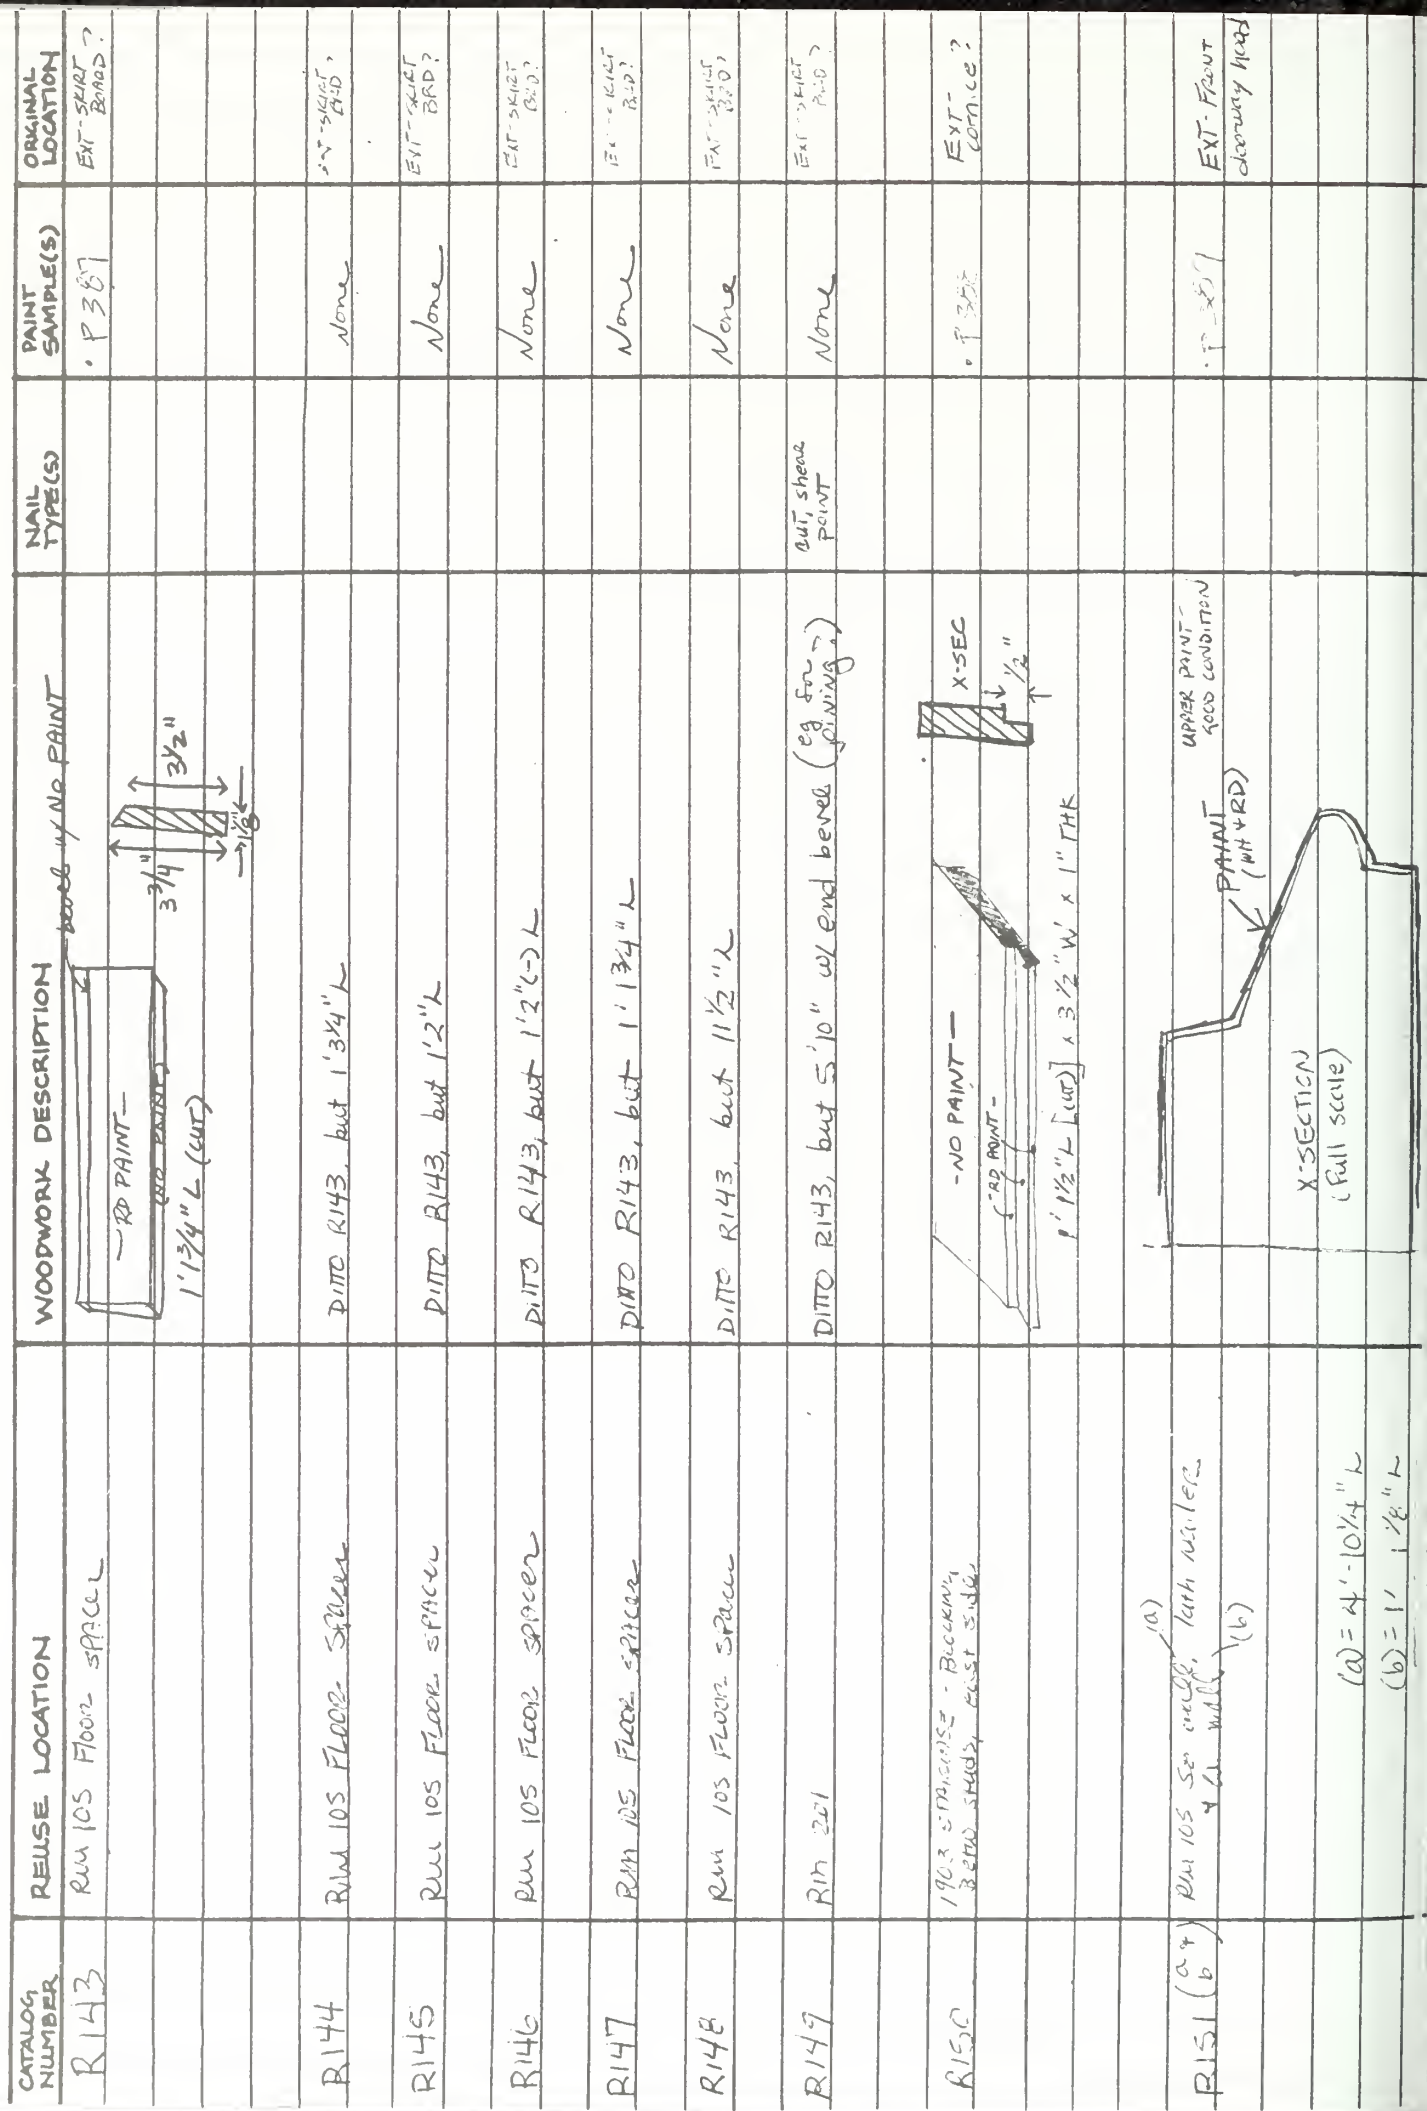 CATALOG NUMBER
REUSE LOCATION
WOODWORK DESCRIPTION
NAIL TYPE(S)
PAINT SAMPLE(S)
ORIGINAL LOCATION
R143
Rm 105 Floor spacer
bevel w/ NO PAINT
— RD PAINT —
(NO PAINT)
1' 1 3/4" L (CUT)
3 3/4"
3 1/2"
1 1/8"
• P387
EXT-SKIRT
BOARD?
R144
Rm 105 FLOOR SPACER
DITTO R143, but 1' 3 3/4" L
None
EXT-SKIRT
BRD?
R145
Rm 105 FLOOR SPACER
DITTO R143, but 1' 2" L
None
EXT-SKIRT
BRD?
R146
Rm 105 FLOOR SPACER
DITTO R143, but 1' 2" (-) L
None
EXT-SKIRT
BRD?
R147
Rm 105 FLOOR SPACER
DITTO R143, but 1' 1 3/4" L
None
EXT-SKIRT
BRD?
R148
Rm 105 FLOOR SPACER
DITTO R143, but 11 1/2" L
None
EXT-SKIRT
BRD?
R149
Rm 201
DITTO R143, but 5' 10" w/ end bevel (eg for
joining?)
cut, shear
point
None
EXT-SKIRT
BRD?
R150
1903 STAIRCASE - BLOCKING
BETW STUDS, EAST SIDE
- NO PAINT -
- RD PAINT -
1' 1 1/2" L [CUT] x 3 1/2" W x 1" THK
X-SEC
1/2"
• P388
EXT-
cornice?
R151 (a + b)
Rm 105 wall, lath nailer
+ wall
(a)
(b)
(a) = 4'-10 1/4" L
(b) = 1' 1 1/8" L
X-SECTION
(Full scale)
PAINT
(WH + RD)
UPPER PAINT -
GOOD CONDITION
EXT-FRONT
doorway head